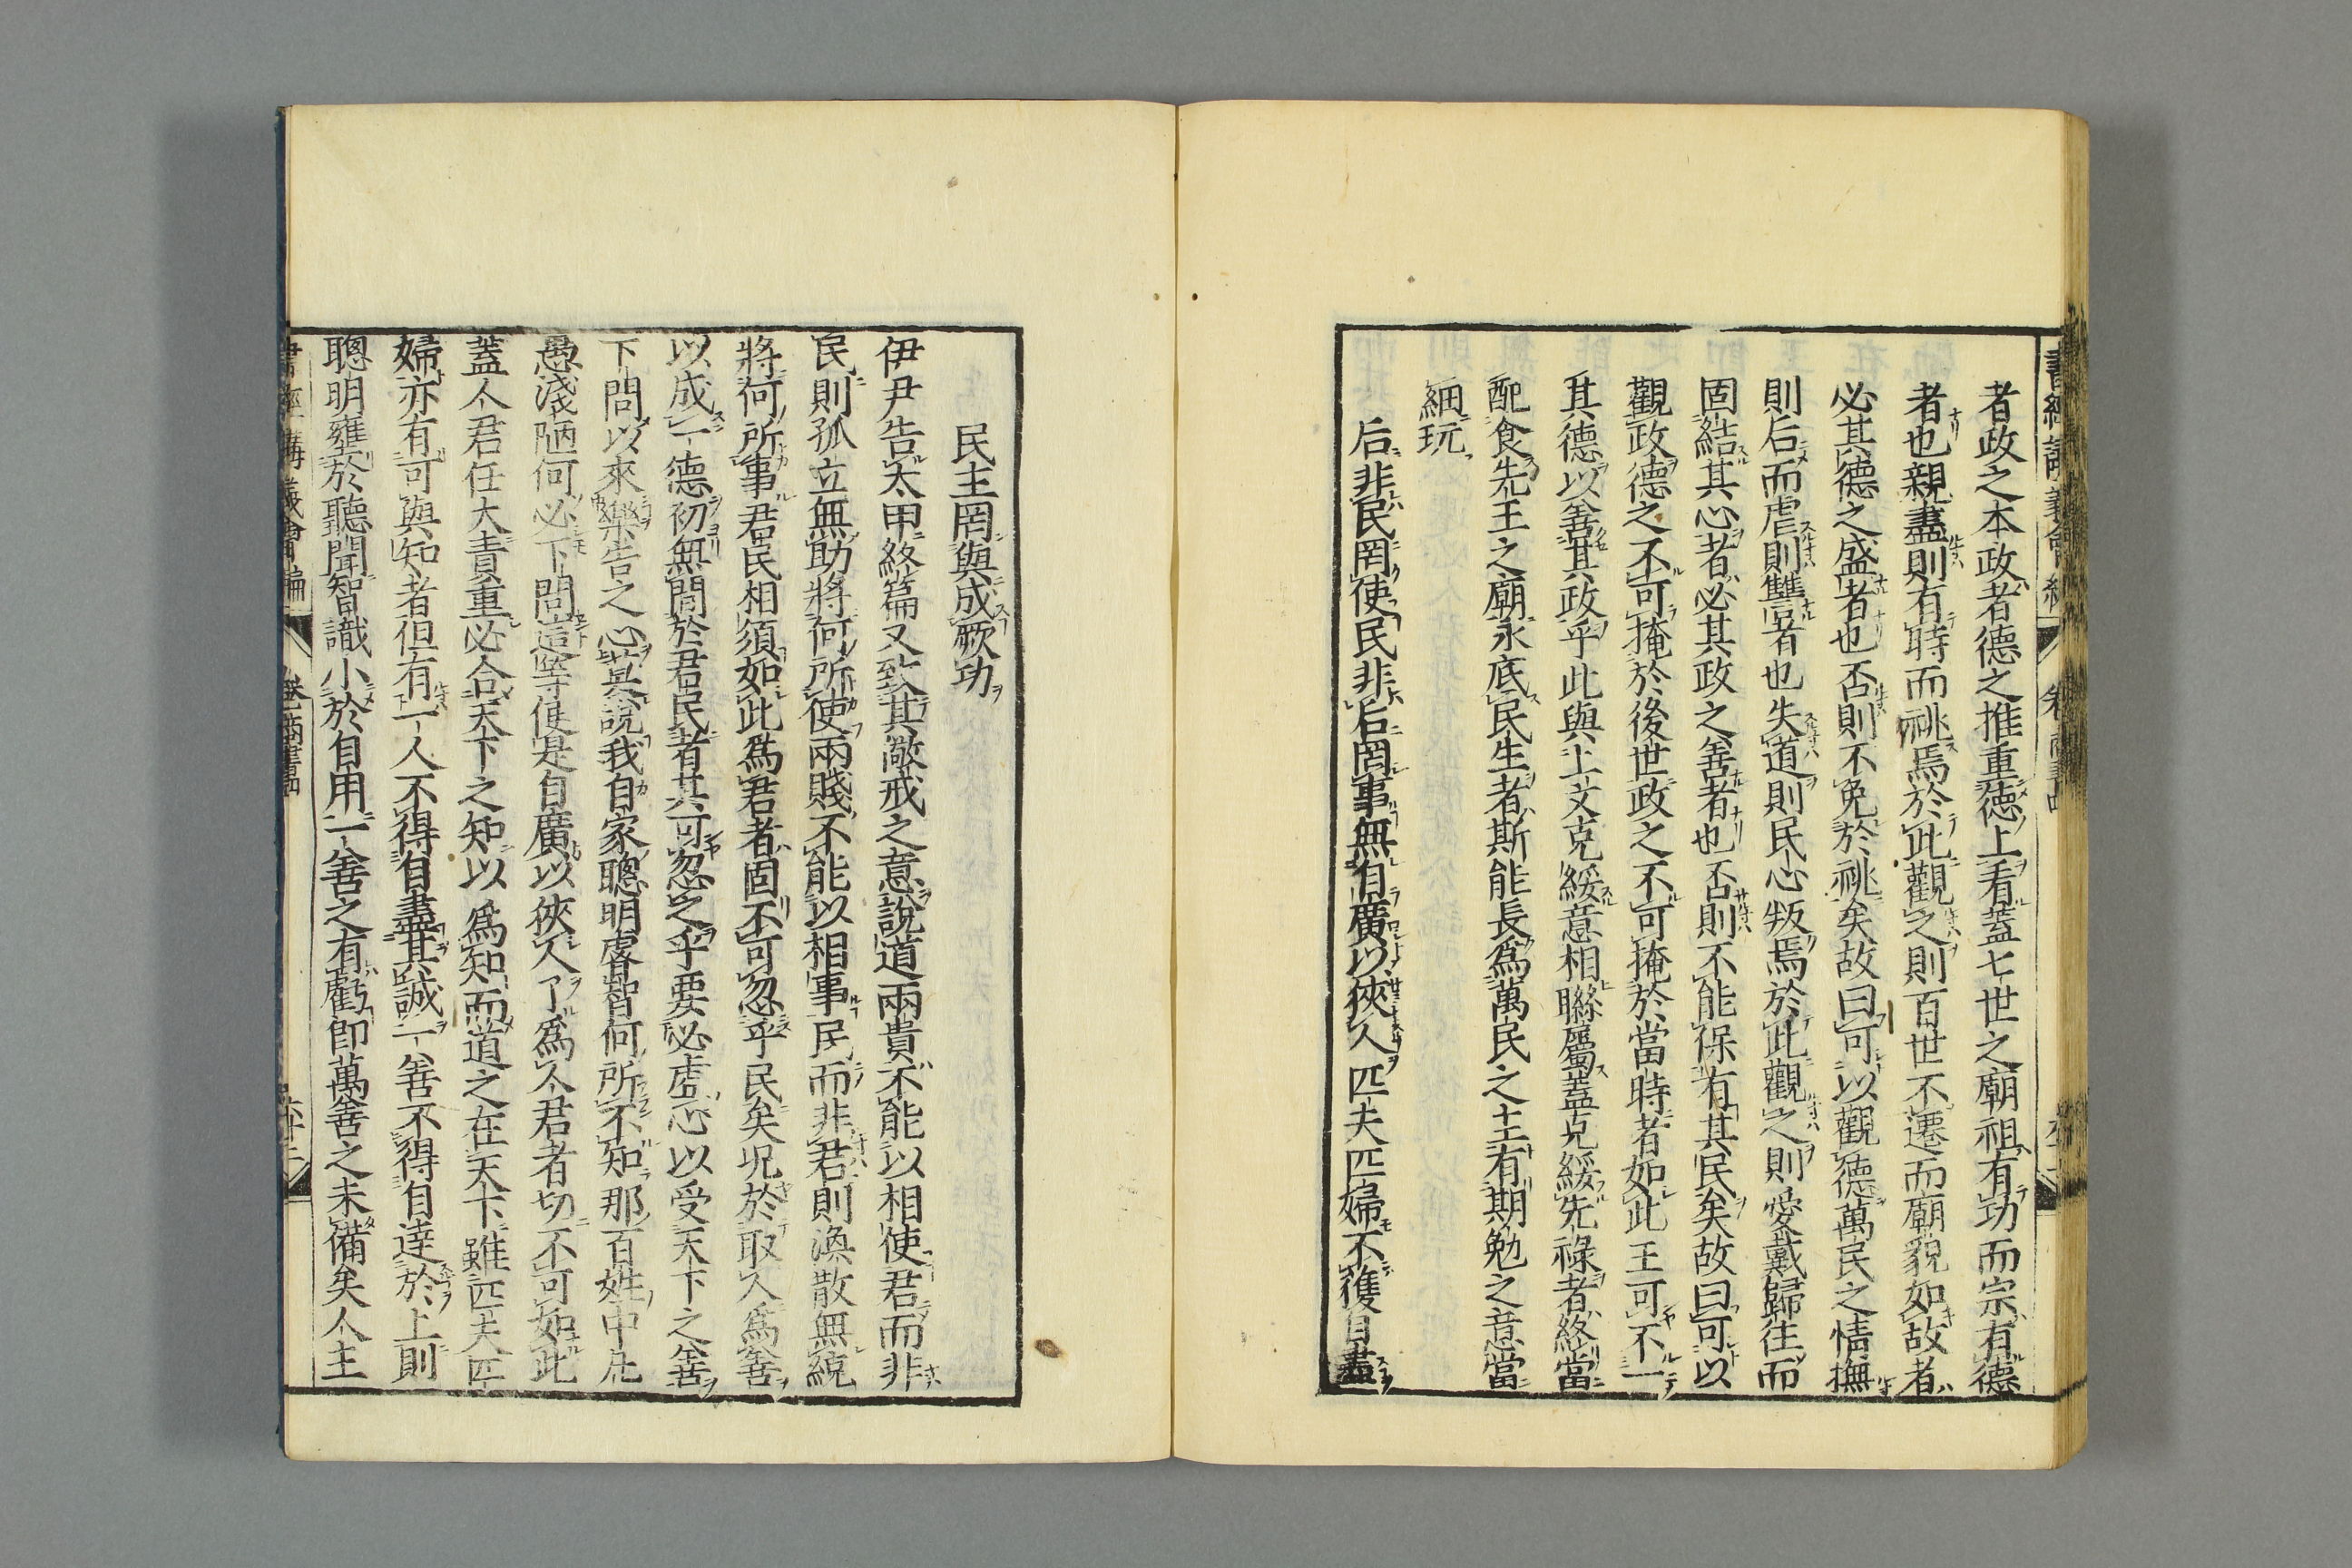 者政之本政者德之推重德上看蓋七世之廟祖有功而宗有德
者也親盡則有時而祧焉於此觀之則百世不遷而廟貌如故者
必其德之盛者也否則不免於祧矣故曰可以觀德萬民之情撫
則后而虐則讐者也失道則民心叛焉於此觀之則愛戴歸往而
固結其心者必其政之善者也否則不能保有其民矣故曰可以
觀政德之不可掩於後世政之不可掩於當時者如此王可不一
其德以善其政乎此與上文克綏意相聯屬蓋克綏先祿者終當
配食先王之廟永底民生者斯能長爲萬民之主有期勉之意當
細玩
后非民罔使民非后罔事無自廣以狹人匹夫匹婦不獲自盡
民主罔與成厥功
伊尹告太甲終篇又致其儆戒之意說道兩貴不能以相使君而非
民則孤立無助將何所使兩賤不能以相事民而非君則渙散無統
將何所事君民相須如此爲君者固不可忽乎民矣况於取人爲善
以成一德初無間於君民者其可忽之乎要必虛心以受天下之善
下問以來樂告之心其說我自家聰明睿智何所不知那百姓中凡
愚淺陋何必下問這等便是自廣以狹人了爲人君者切不可如此
蓋人君任大責重必合天下之知以爲知而道之在天下雖匹夫匹
婦亦有可與知者但有一人不得自盡其誠一善不得自達於上則
聰明壅於聽聞智識小於自用一善之有虧卽萬善之未備矣人主
書經講義會編 卷 商書四